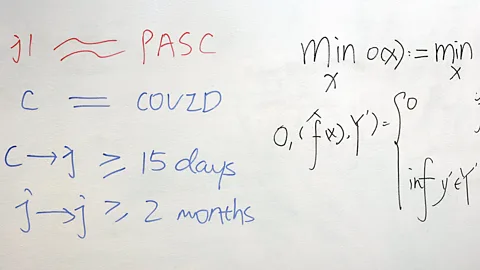 j1 ≈ PASC
C = COVID
C→j ≥ 15 days
j→j ≥ 2 months
min o(x) := min
x x
O, (f̂(x), Y') = { 0
inf y'∈Y'